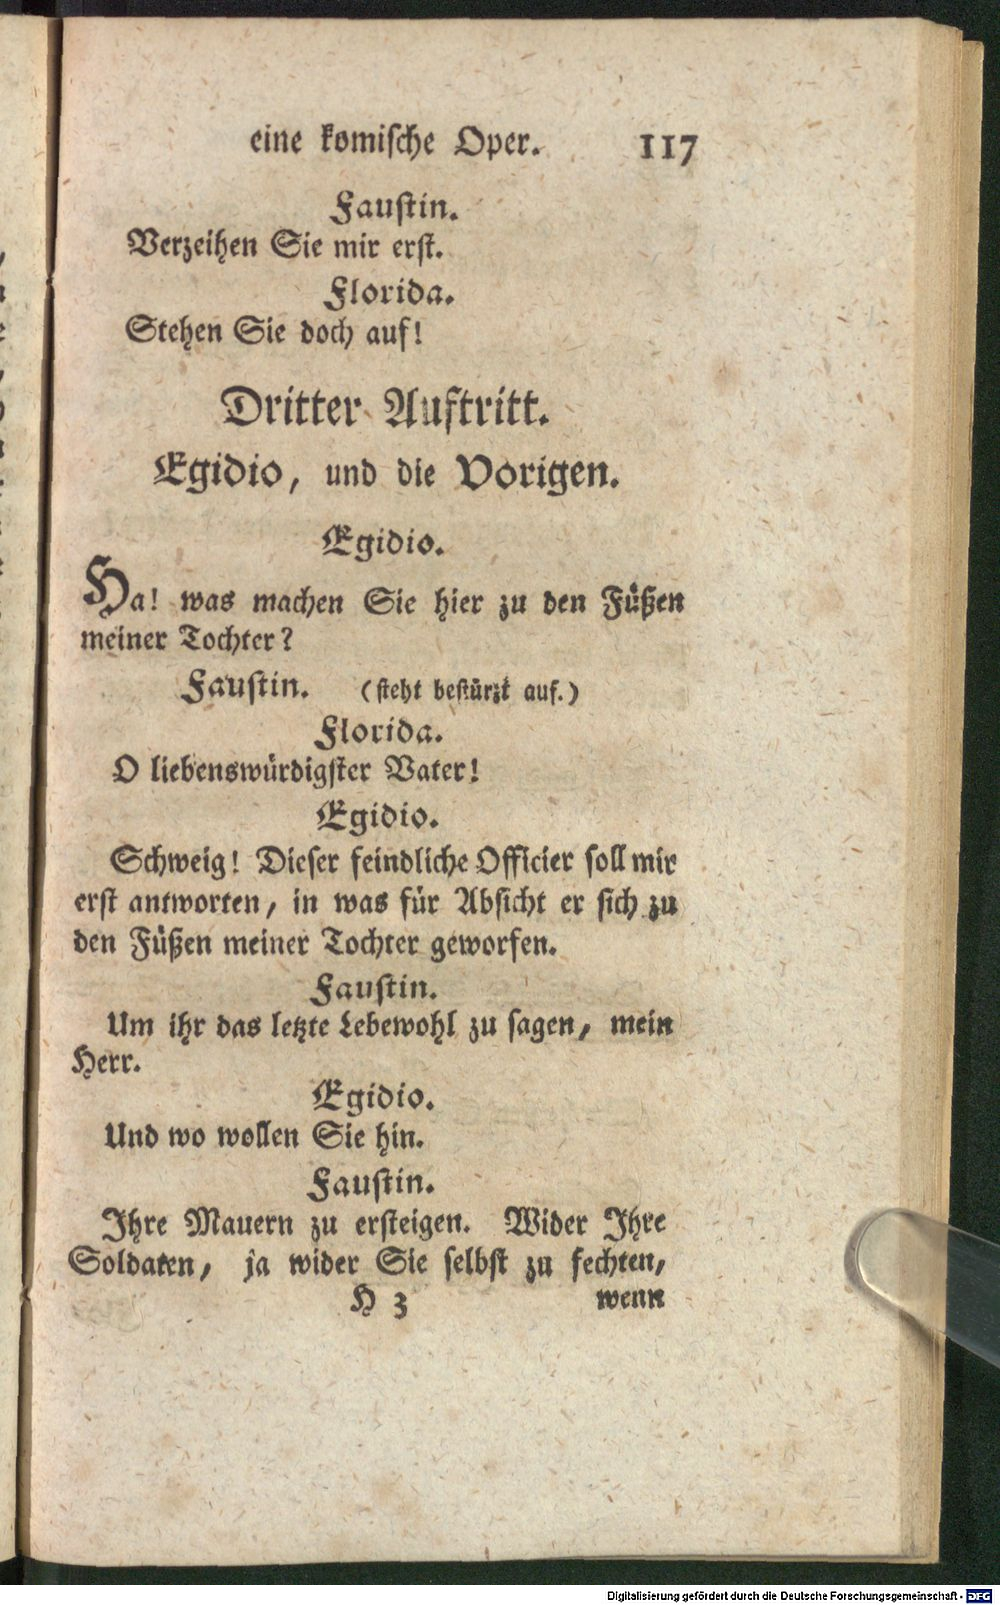 eine komische Oper. 117
Faustin.
Verzeihen Sie mir erst.
Florida.
Stehen Sie doch auf!
Dritter Auftritt.
Egidio, und die Vorigen.
Egidio.
Ha! was machen Sie hier zu den Füßen
meiner Tochter?
Faustin. (steht bestürzt auf.)
Florida.
O liebenswürdigster Vater!
Egidio.
Schweig! Dieser feindliche Officier soll mir
erst antworten, in was für Absicht er sich zu
den Füßen meiner Tochter geworfen.
Faustin.
Um ihr das letzte Lebewohl zu sagen, mein
Herr.
Egidio.
Und wo wollen Sie hin.
Faustin.
Ihre Mauern zu ersteigen. Wider Ihre
Soldaten, ja wider Sie selbst zu fechten,
H 3 wenn
Digitalisierung gefördert durch die Deutsche Forschungsgemeinschaft - DFG